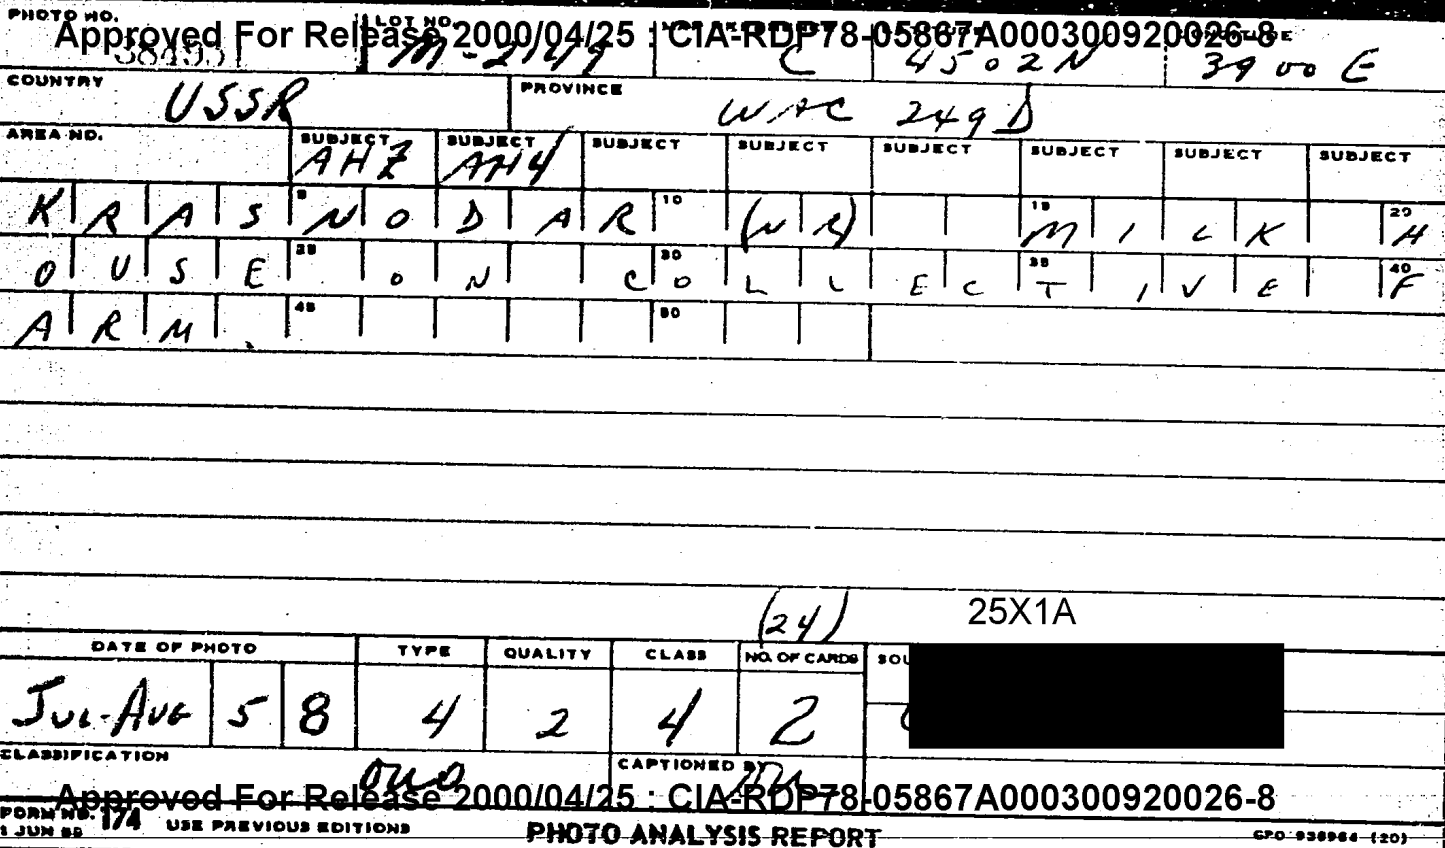 PHOTO NO. LOT NO.
Approved For Release 2000/04/25 : CIA-RDP78-05867A000300920026-8
384951 M-2149 C 4502N 3900E
COUNTRY USSR PROVINCE WAC 249D
AREA NO. SUBJECT SUBJECT SUBJECT SUBJECT SUBJECT SUBJECT SUBJECT SUBJECT
AHZ AH4
KRAS 5 NODAR 10 (NR) 15 MILK 20 H
OUSE 25 ON CO 30 LLECT 35 IVE 40 F
ARM. 45 50
(24) 25X1A
DATE OF PHOTO TYPE QUALITY CLASS NO. OF CARDS
JUL-AUG 58 4 2 4 2
CLASSIFICATION OUO CAPTIONED BY
Approved For Release 2000/04/25 : CIA-RDP78-05867A000300920026-8
FORM NO. 174 USE PREVIOUS EDITIONS PHOTO ANALYSIS REPORT GPO 936964 (20)
1 JUN